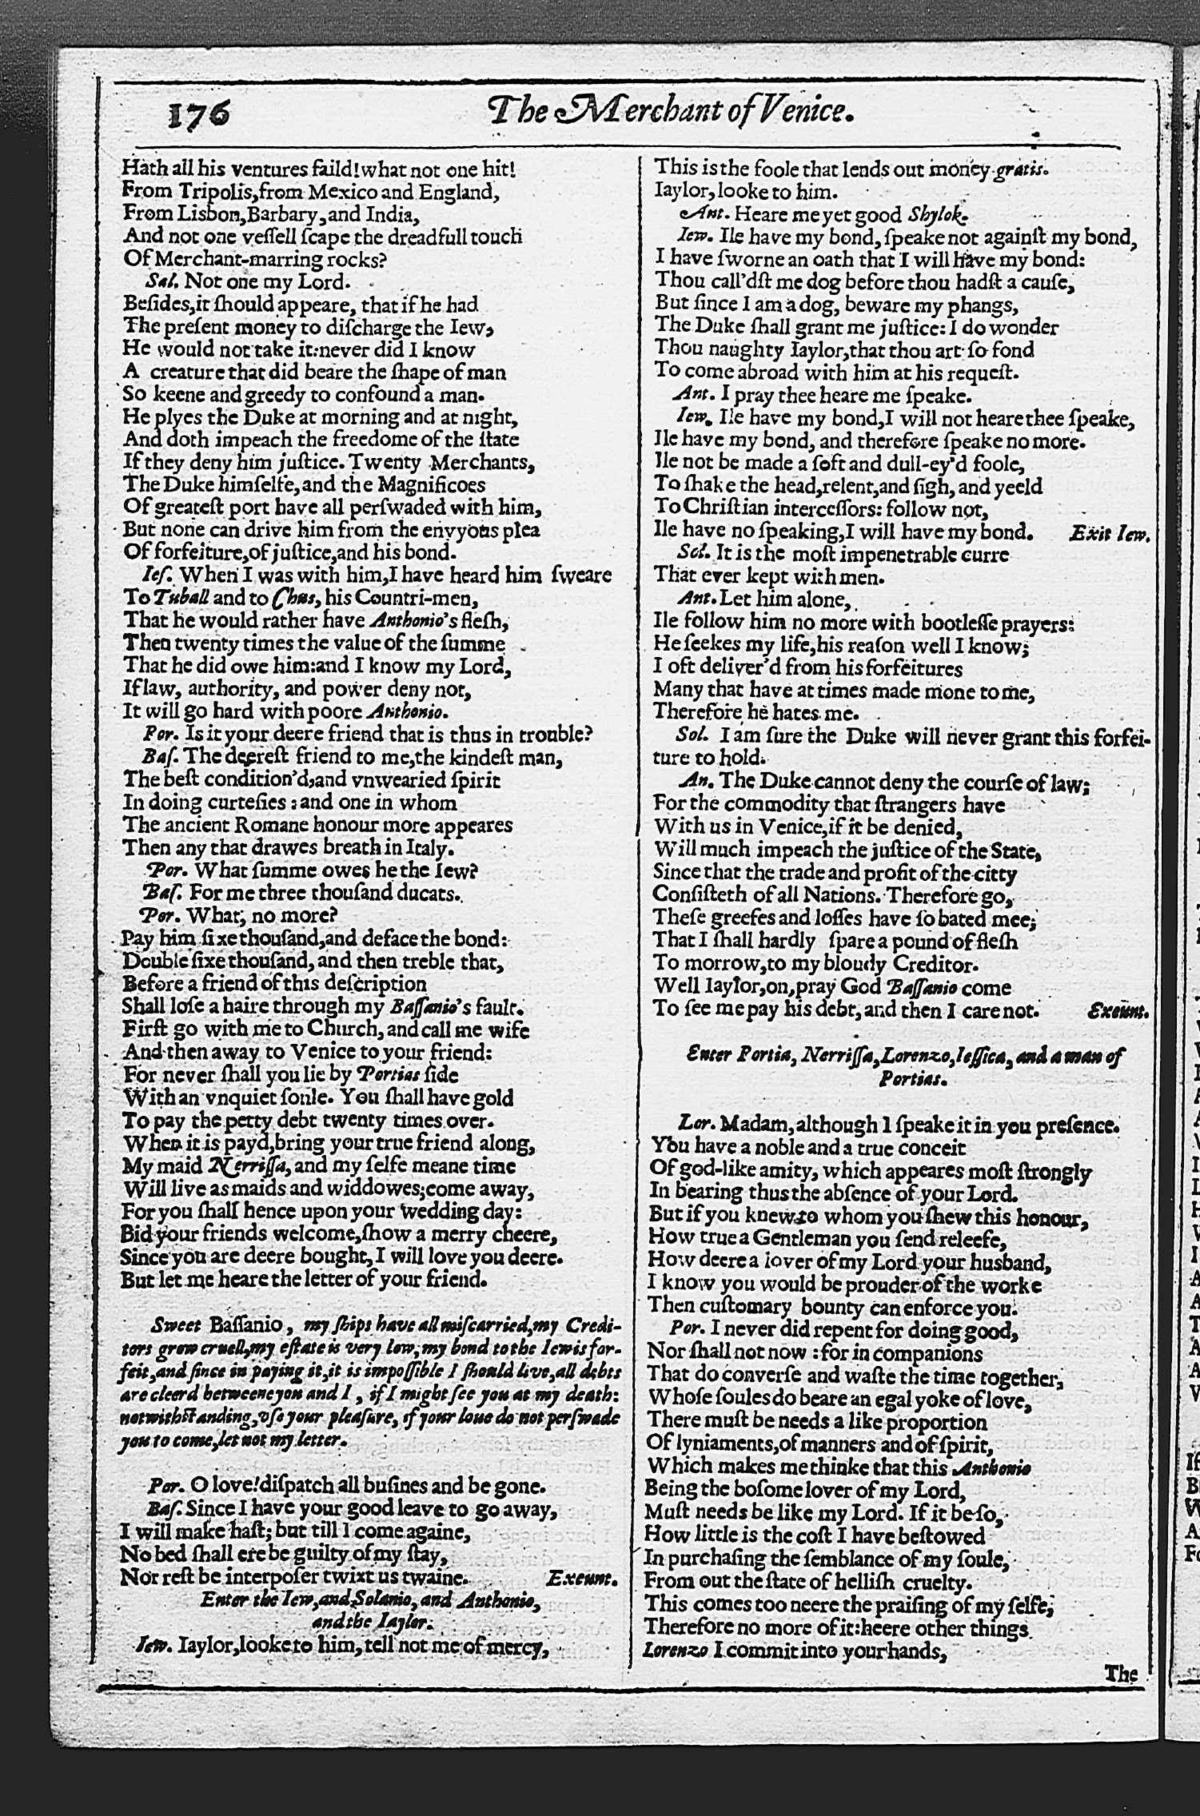 176
The Merchant of Venice.
Hath all his ventures faild! what not one hit!
From Tripolis, from Mexico and England,
From Lisbon, Barbary, and India,
And not one veſſell ſcape the dreadfull touch
Of Merchant-marring rocks?
Sal. Not one my Lord.
Beſides, it ſhould appeare, that if he had
The preſent money to diſcharge the Iew,
He would not take it: never did I know
A creature that did beare the ſhape of man
So keene and greedy to confound a man.
He plyes the Duke at morning and at night,
And doth impeach the freedome of the ſtate
If they deny him juſtice. Twenty Merchants,
The Duke himſelfe, and the Magnificoes
Of greateſt port have all perſwaded with him,
But none can drive him from the envyous plea
Of forfeiture, of juſtice, and his bond.
Ieſ. When I was with him, I have heard him ſweare
To Tuball and to Chus, his Countri-men,
That he would rather have Anthonio's fleſh,
Then twenty times the value of the ſumme
That he did owe him: and I know my Lord,
If law, authority, and power deny not,
It will go hard with poore Anthonio.
Por. Is it your deere friend that is thus in trouble?
Baſ. The deereſt friend to me, the kindeſt man,
The beſt condition'd, and vnwearied ſpirit
In doing curteſies: and one in whom
The ancient Romane honour more appeares
Then any that drawes breath in Italy.
Por. What ſumme owes he the Iew?
Baſ. For me three thouſand ducats.
Por. What, no more?
Pay him ſixe thouſand, and deface the bond:
Double ſixe thouſand, and then treble that,
Before a friend of this deſcription
Shall loſe a haire through my Baſſanio's fault.
Firſt go with me to Church, and call me wife
And then away to Venice to your friend:
For never ſhall you lie by Portias ſide
With an vnquiet ſoule. You ſhall have gold
To pay the petty debt twenty times over.
When it is payd, bring your true friend along,
My maid Nerriſſa, and my ſelfe meane time
Will live as maids and widdowes; come away,
For you ſhall hence upon your wedding day:
Bid your friends welcome, ſhow a merry cheere,
Since you are deere bought, I will love you deere.
But let me heare the letter of your friend.
Sweet Baſſanio, my ſhips have all miſcarried, my Credi-
tors grow cruell, my eſtate is very low, my bond to the Iew is for-
feit, and ſince in paying it, it is impoſſible I ſhould live, all debts
are cleerd betweene you and I, if I might ſee you at my death:
notwithſtanding, vſe your pleaſure, if your loue do not perſwade
you to come, let not my letter.
Por. O love! diſpatch all buſines and be gone.
Baſ. Since I have your good leave to go away,
I will make haſt; but till I come againe,
No bed ſhall ere be guilty of my ſtay,
Nor reſt be interpoſer twixt us twaine. Exeunt.
Enter the Iew, and Solanio, and Anthonio,
and the Iaylor.
Iew. Iaylor, looke to him, tell not me of mercy,
This is the foole that lends out money gratis.
Iaylor, looke to him.
Ant. Heare me yet good Shylok.
Iew. Ile have my bond, ſpeake not againſt my bond,
I have ſworne an oath that I will have my bond:
Thou call'dſt me dog before thou hadſt a cauſe,
But ſince I am a dog, beware my phangs,
The Duke ſhall grant me juſtice: I do wonder
Thou naughty Iaylor, that thou art ſo fond
To come abroad with him at his requeſt.
Ant. I pray thee heare me ſpeake.
Iew. Ile have my bond, I will not heare thee ſpeake,
Ile have my bond, and therefore ſpeake no more.
Ile not be made a ſoft and dull-ey'd foole,
To ſhake the head, relent, and ſigh, and yeeld
To Chriſtian interceſſors: follow not,
Ile have no ſpeaking, I will have my bond. Exit Iew.
Sol. It is the moſt impenetrable curre
That ever kept with men.
Ant. Let him alone,
Ile follow him no more with bootleſſe prayers:
He ſeekes my life, his reaſon well I know;
I oft deliver'd from his forfeitures
Many that have at times made mone to me,
Therefore he hates me.
Sol. I am ſure the Duke will never grant this forfei-
ture to hold.
An. The Duke cannot deny the courſe of law;
For the commodity that ſtrangers have
With us in Venice, if it be denied,
Will much impeach the juſtice of the State,
Since that the trade and profit of the citty
Conſiſteth of all Nations. Therefore go,
Theſe greefes and loſſes have ſo bated mee,
That I ſhall hardly ſpare a pound of fleſh
To morrow, to my bloudy Creditor.
Well Iaylor, on, pray God Baſſanio come
To ſee me pay his debt, and then I care not. Exeunt.
Enter Portia, Nerriſſa, Lorenzo, Ieſſica, and a man of
Portias.
Lor. Madam, although I ſpeake it in you preſence.
You have a noble and a true conceit
Of god-like amity, which appeares moſt ſtrongly
In bearing thus the abſence of your Lord.
But if you knew to whom you ſhew this honour,
How true a Gentleman you ſend releefe,
How deere a lover of my Lord your husband,
I know you would be prouder of the worke
Then cuſtomary bounty can enforce you.
Por. I never did repent for doing good,
Nor ſhall not now: for in companions
That do converſe and waſte the time together,
Whoſe ſoules do beare an egal yoke of love,
There muſt be needs a like proportion
Of lyniaments, of manners and of ſpirit,
Which makes me thinke that this Anthonio
Being the boſome lover of my Lord,
Muſt needs be like my Lord. If it be ſo,
How little is the coſt I have beſtowed
In purchaſing the ſemblance of my ſoule,
From out the ſtate of helliſh cruelty.
This comes too neere the praiſing of my ſelfe;
Therefore no more of it: heere other things
Lorenzo I commit into your hands,
The